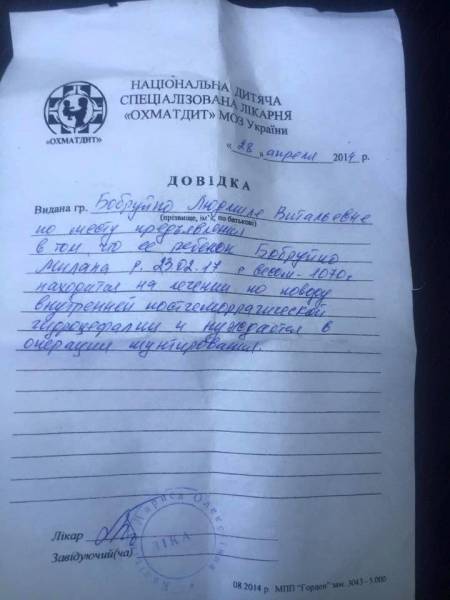 НАЦІОНАЛЬНА ДИТЯЧА
СПЕЦІАЛІЗОВАНА ЛІКАРНЯ
«ОХМАТДИТ» МОЗ України
«ОХМАТДИТ»
«28» апреля 2017 р.
ДОВІДКА
Видана гр. Бобруйко Людмиле Витальевне
(прізвище, ім'я, по батькові)
по месту предъявления
в том, что ее ребенок Бобруйко
Милана р. 23.02.17 с весом - 1070 г
находится на лечении по поводу
внутренней постгеморрагической
гидроцефалии и нуждается в
операции шунтирования.
Лікар
Завідуючий(ча)
Лариса Олекс
ЗІКА
08 2014 р. МПП "Гордон" зам. 3043 - 5.000